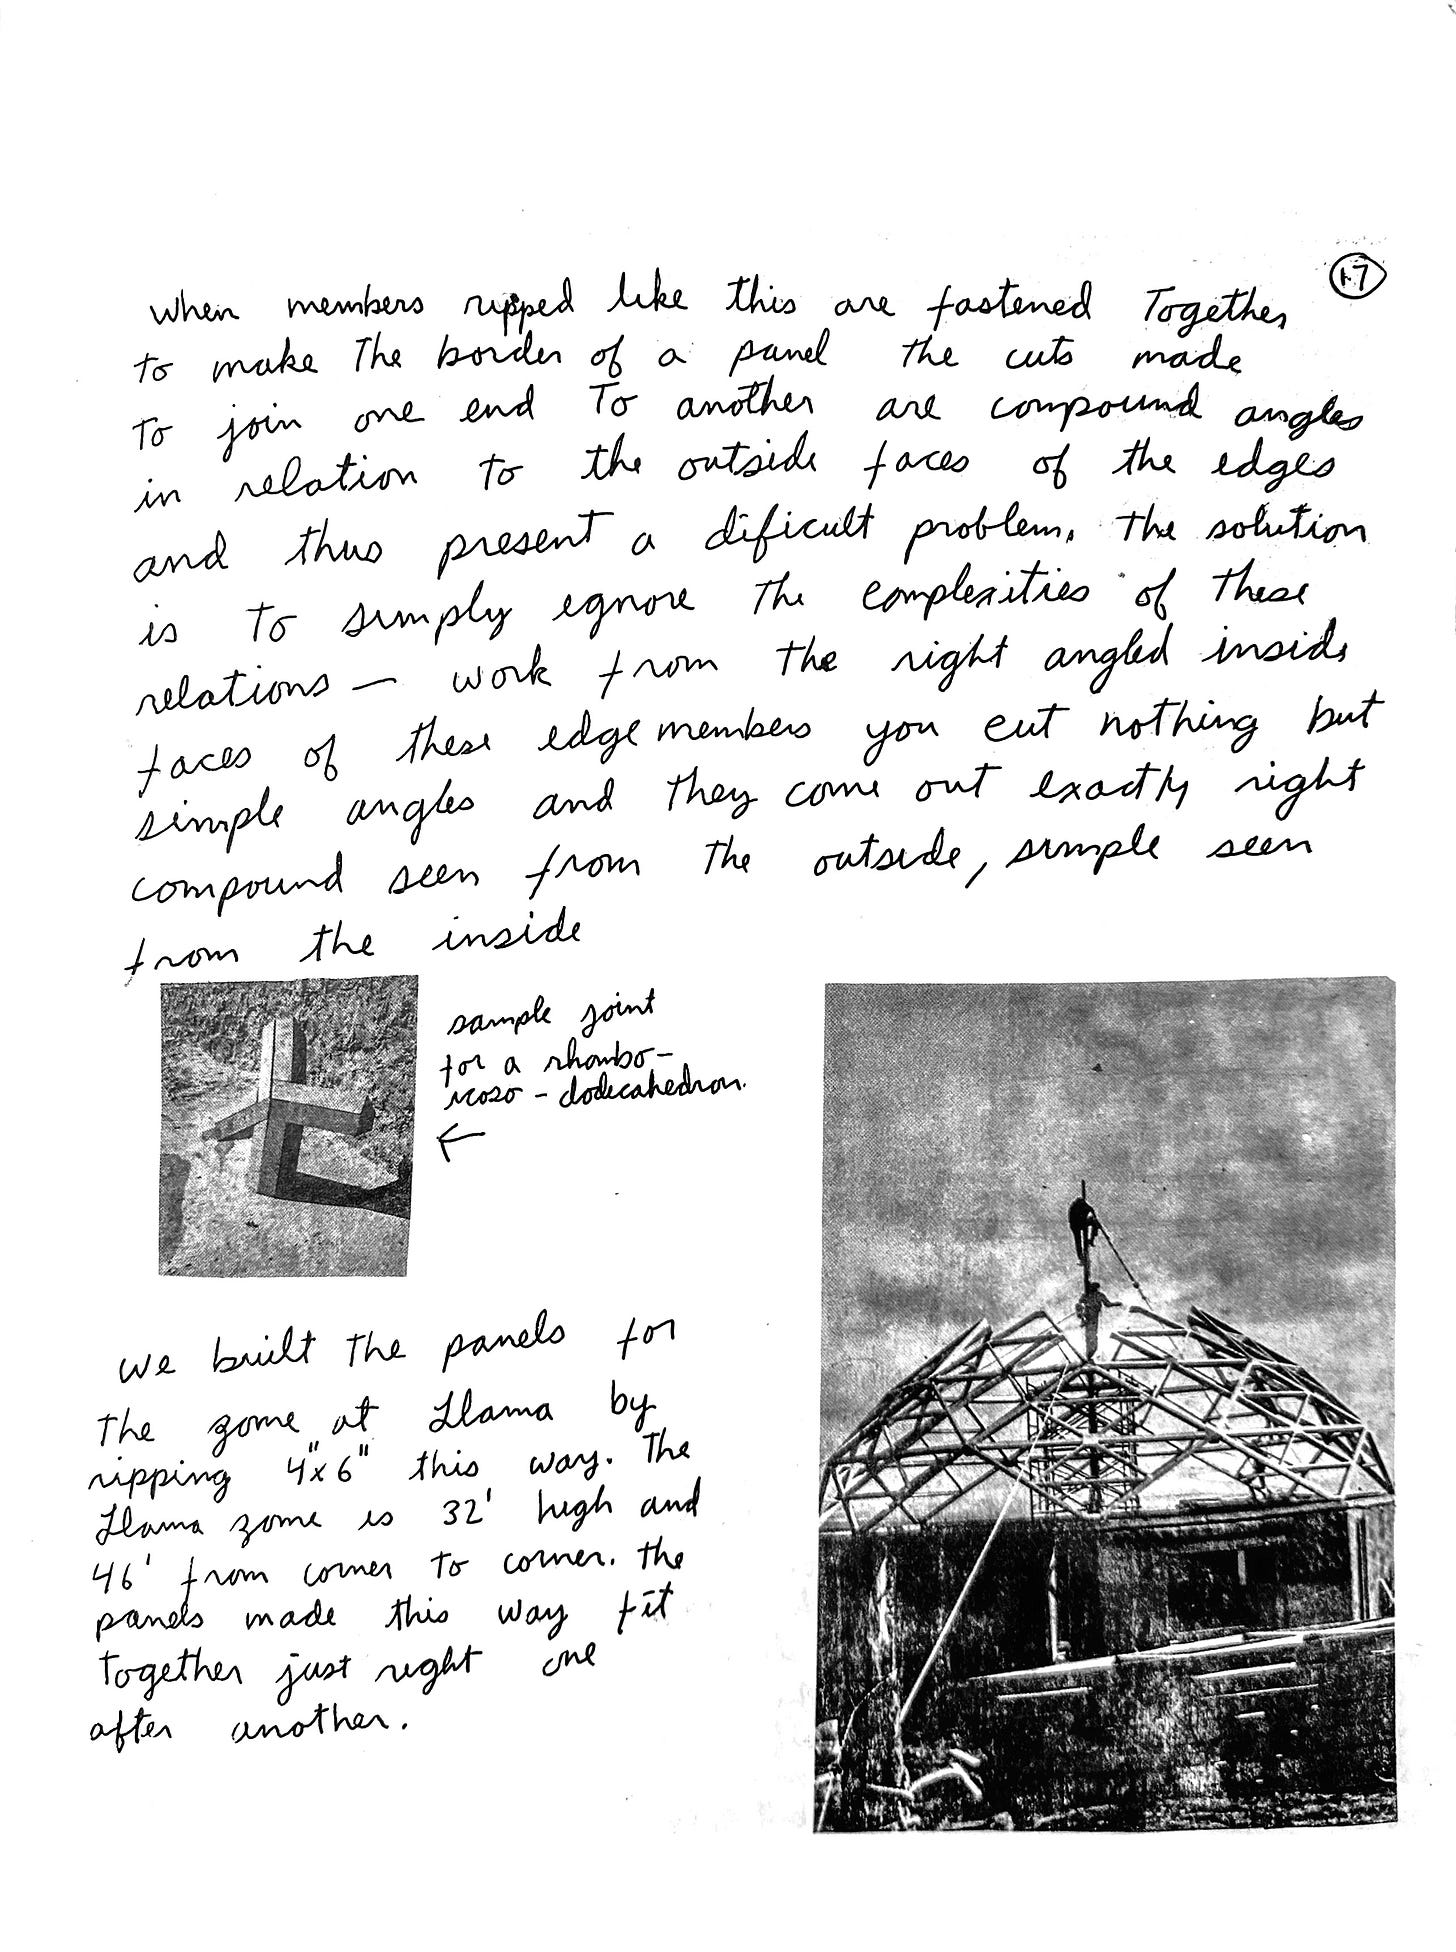 17
when members ripped like this are fastened Together
to make The border of a panel the cuts made
to join one end To another are compound angles
in relation to the outside faces of the edges
and thus present a dificult problem. The solution
is to simply egnore the complexities of these
relations — work from the right angled inside
faces of these edge members you cut nothing but
simple angles and they come out exactly right
compound seen from the outside, simple seen
from the inside
sample joint
for a rhombo-
icoso-dodecahedron.
we built the panels for
the zome at Llama by
ripping 4"x6" this way. The
Llama zome is 32' high and
46' from corner to corner. the
panels made this way fit
together just right one
after another.